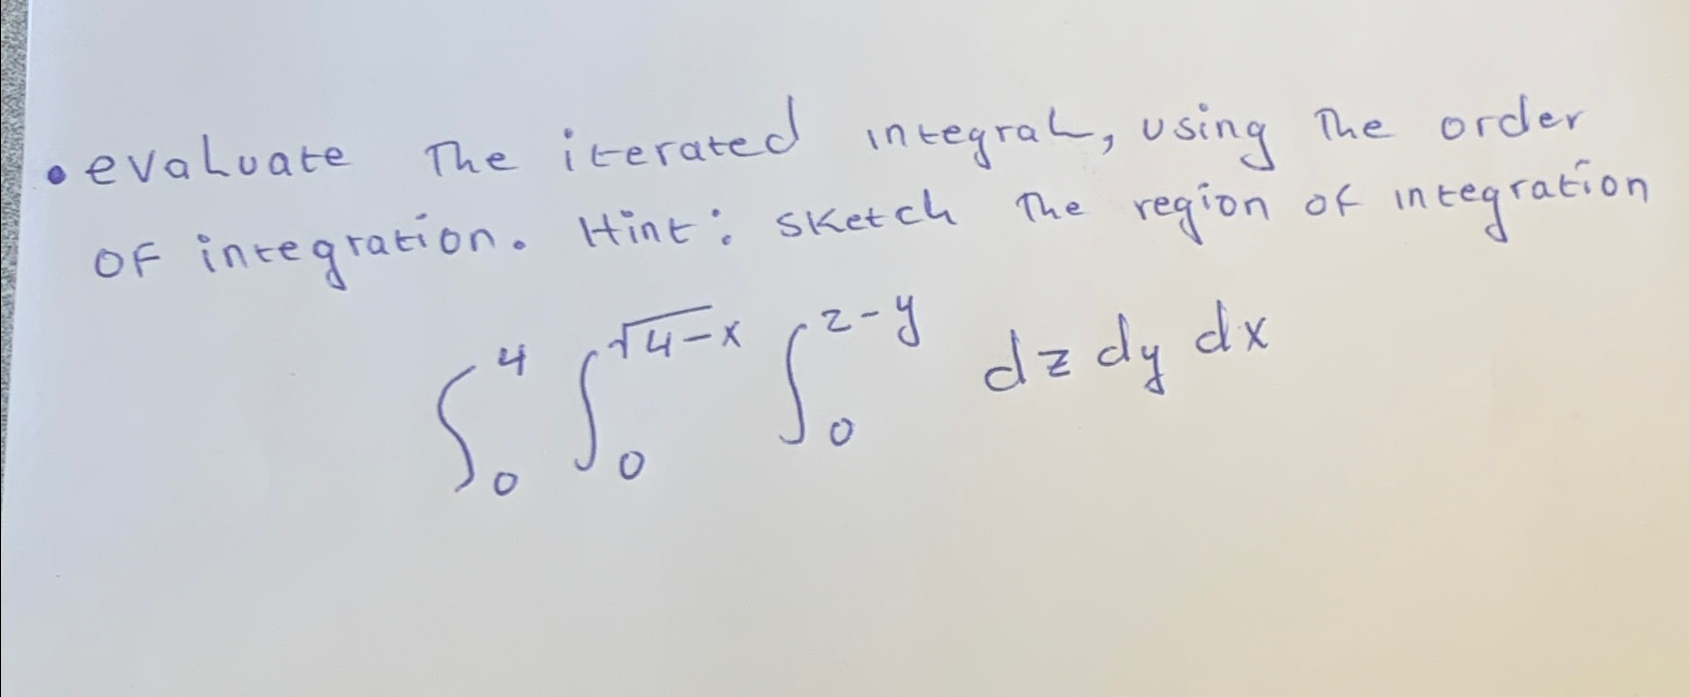 • evaluate The iterated integral, using The order
of integration. Hint: sketch The region of integration
∫₀⁴ ∫₀^√(4-x) ∫₀^(2-y) dz dy dx